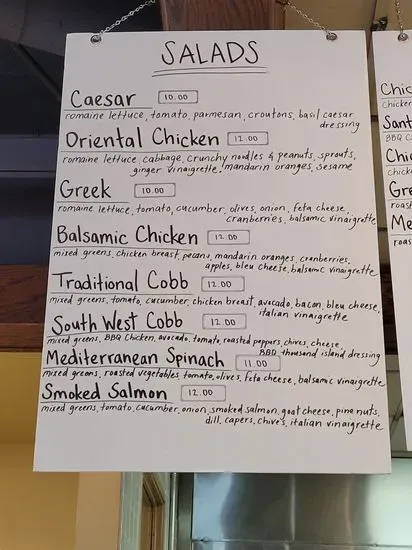 SALADS
Caesar 10.00
romaine lettuce, tomato, parmesan, croutons, basil caesar
dressing
Oriental Chicken 12.00
romaine lettuce, cabbage, crunchy noodles & peanuts, sprouts,
ginger vinaigrette, mandarin oranges, sesame
Greek 10.00
romaine lettuce, tomato, cucumber, olives, onion, feta cheese,
cranberries, balsamic vinaigrette
Balsamic Chicken 12.00
mixed greens, chicken breast, pecans, mandarin oranges, cranberries,
apples, bleu cheese, balsamic vinaigrette
Traditional Cobb 12.00
mixed greens, tomato, cucumber, chicken breast, avocado, bacon, bleu cheese,
italian vinaigrette
South West Cobb 12.00
mixed greens, BBQ Chicken, avocado, tomato, roasted peppers, chives, cheese,
BBQ thousand island dressing
Mediterranean Spinach 11.00
mixed greens, roasted vegetables, tomato, olives, feta cheese, balsamic vinaigrette
Smoked Salmon 12.00
mixed greens, tomato, cucumber, onion, smoked salmon, goat cheese, pine nuts,
dill, capers, chives, italian vinaigrette
Chic
chicken
Sant
BBQ C
Chic
chicke
Gre
roast
Me
roast